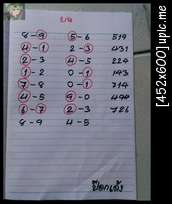 8-9 5-6 519
4-1 2-3 431
2-3 4-5 224
1-2 0-1 143
7-8 0-1 714
4-5 9-0 494
6-7 2-3 726
8-9 4-5
ป๊อกเด้ง
[452x600] upic.me